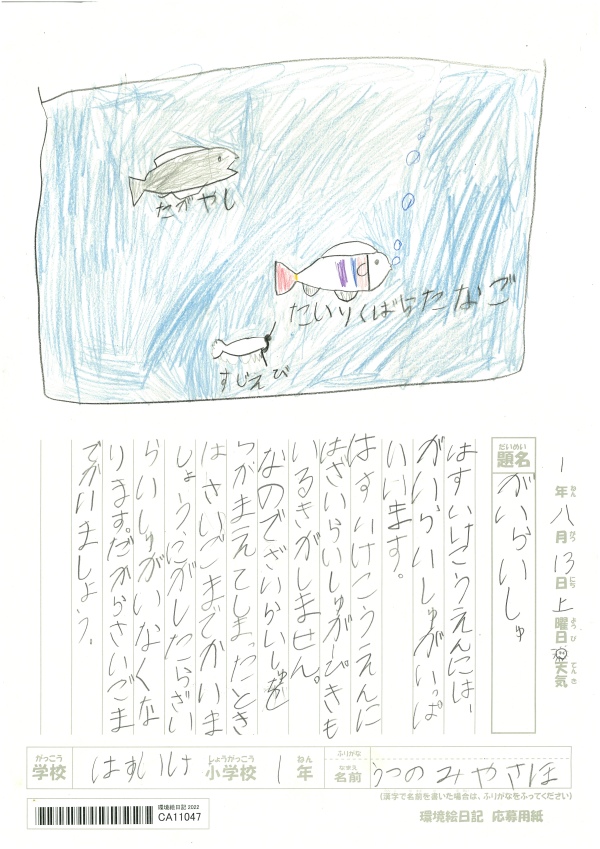 たがやし
たいりくばらたなご
すじえび
1年八月13日土曜日天気
ねん がつ にち ようび てんき
だいめい
題名 がいらいしゅ
はすいけこうえんには、
がいらいしゅがいっぱ
いいます。
はすいけこうえんに
はざいらいしゅが一ぴきも
いるきがしません。
なのでざいらいしゅを
つかまえてしまったとき
はさいごまでかいま
しょう。にがしたらざい
らいしゅがいなくな
ります。だからさいごま
でかいましょう。
がっこう しょうがっこう ねん ふりがな なまえ
学校 はすいけ 小学校 1年 名前 うつのみやさほ
(漢字で名前を書いた場合は、ふりがなをふってください)
環境絵日記 応募用紙
環境絵日記 2022
CA11047